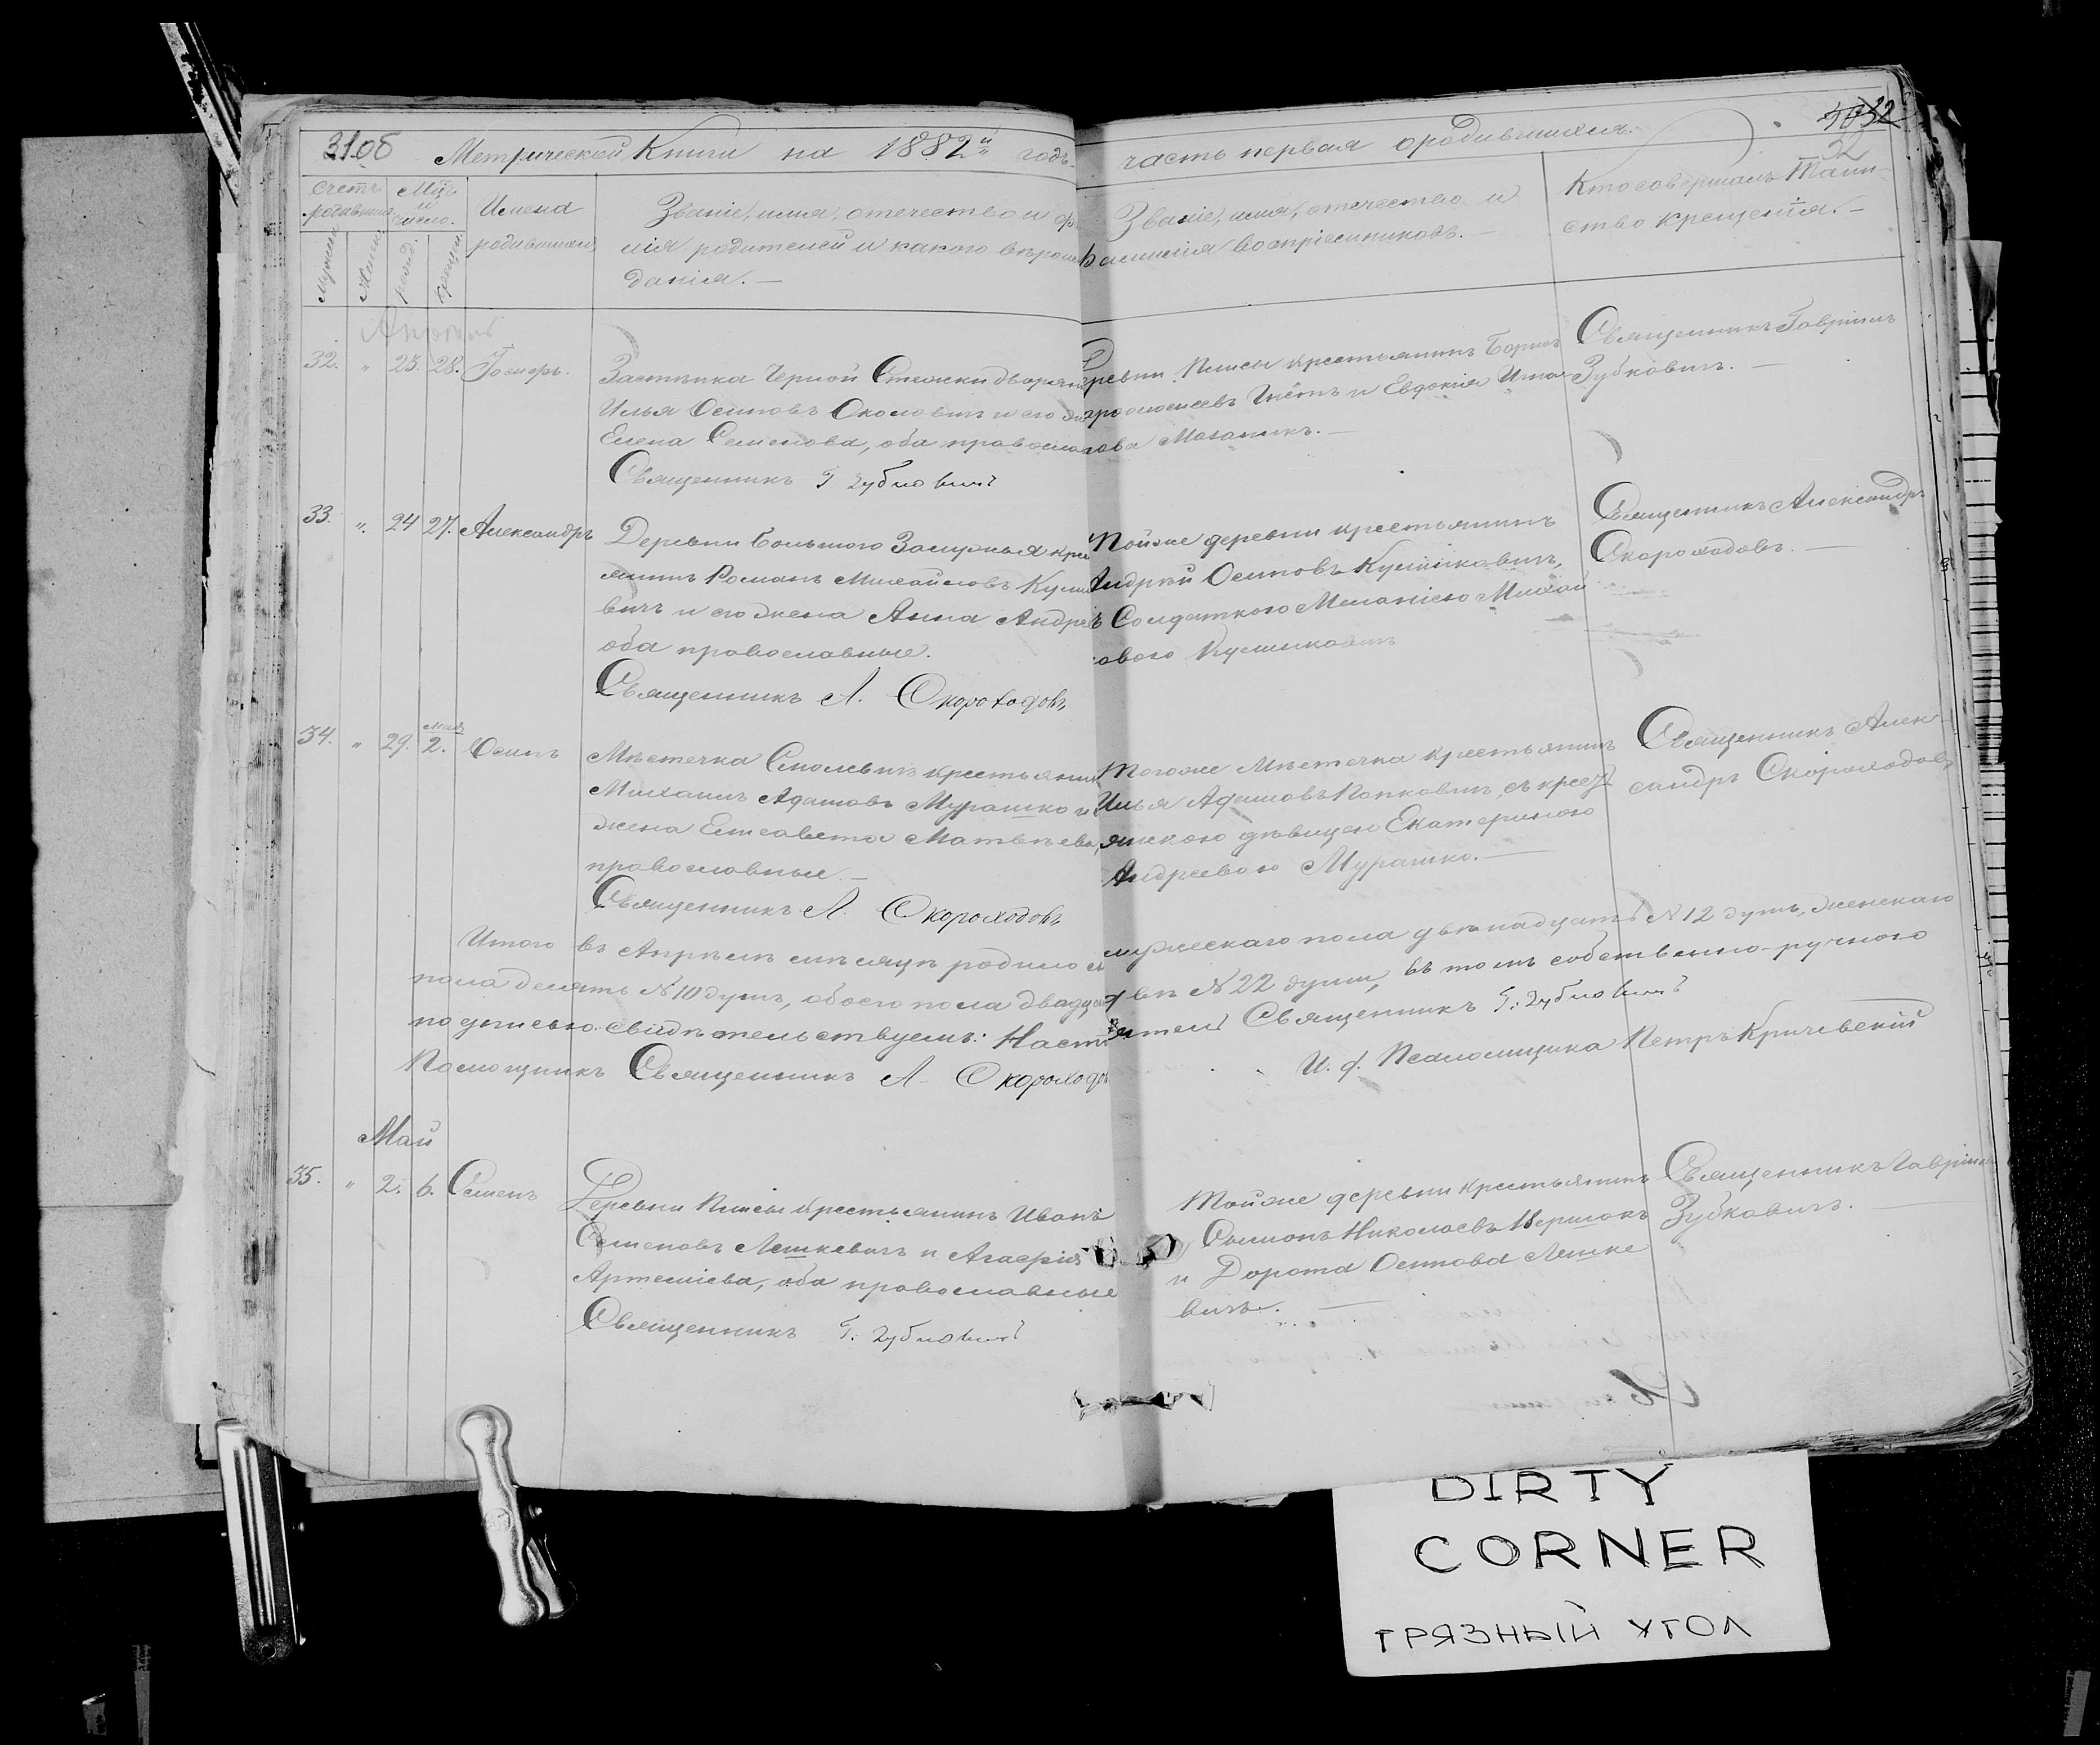 31об Метрической Книги на 1882й годъ
часть первая о родившихся.
32
счетъ родивших. Мцъ и число. Имена родившихся
Мужска Женск. рожд. крещен.
Званіе, имя, отечество и фа
милія родителей и какого вѣроиспо
данія. —
Званіе, имя, отечество и
фамилія воспріемниковъ. —
Кто совершалъ Таин-
ство крещенія. —
Апрѣль
32. " 25. 28. Іосифъ.
Застѣнка Черной Стежки дворянинъ
Илья Осиповъ Околовичъ и его жена
Елена Семенова, оба православ
Священникъ Г Зубковичъ
Деревни Плисы крестьянинъ Борисъ
и Евдокія
Мазаникъ. —
Священникъ Гавріилъ
Зубковичъ. —
33. " 24 27. Александръ
Деревни Большого Залужья крес
янинъ Романъ Михайловъ Кули
вичъ и его жена Анна Андре
оба православные.
Священникъ А. Скороходовъ
Тойже деревни крестьянинъ
Андрей Осиповъ Куликовичъ,
съ Солдаткою Меланіею Михай
ловою Куликовичъ
Священникъ Александръ
Скороходовъ. —
34. " 29. Мая 2. Осипъ
Мѣстечка Смолевичъ крестьянинъ
Михаилъ Адамовъ Мурашко и
жена Елисавета Матвѣева,
православные. —
Священникъ А. Скороходовъ
Тогоже Мѣстечка крестьянинъ
Илья Адамовъ Попковичъ, съ крест
янскою дѣвицею Екатериною
Андреевою Мурашко. —
Священникъ Алек
сандръ Скороходовъ
Итого въ Апрѣлѣ мѣсяцѣ родилось мужескаго пола двѣнадцать №12 душъ, женскаго
пола десять №10 душъ, обоего пола двадцать двѣ №22 души, въ томъ собственно-ручною
подписью свидѣтельствуемъ: Настоятель Священникъ Г. Зубковичъ
Помощникъ Священникъ А. Скороходовъ
И. д. Псаломщика Петръ Кричевскій
Май
35. " 2. 6. Семенъ
Деревни Плисы крестьянинъ Иванъ
Семеновъ Лешкевичъ и Агафія
Артеміева, оба православные
Священникъ Г. Зубковичъ
Тойже деревни крестьянинъ
Николаевъ
и Дорота Осипова Лешке
вичъ. —
Священникъ Гавріилъ
Зубковичъ. —
DIRTY
CORNER
ГРЯЗНЫЙ УГОЛ